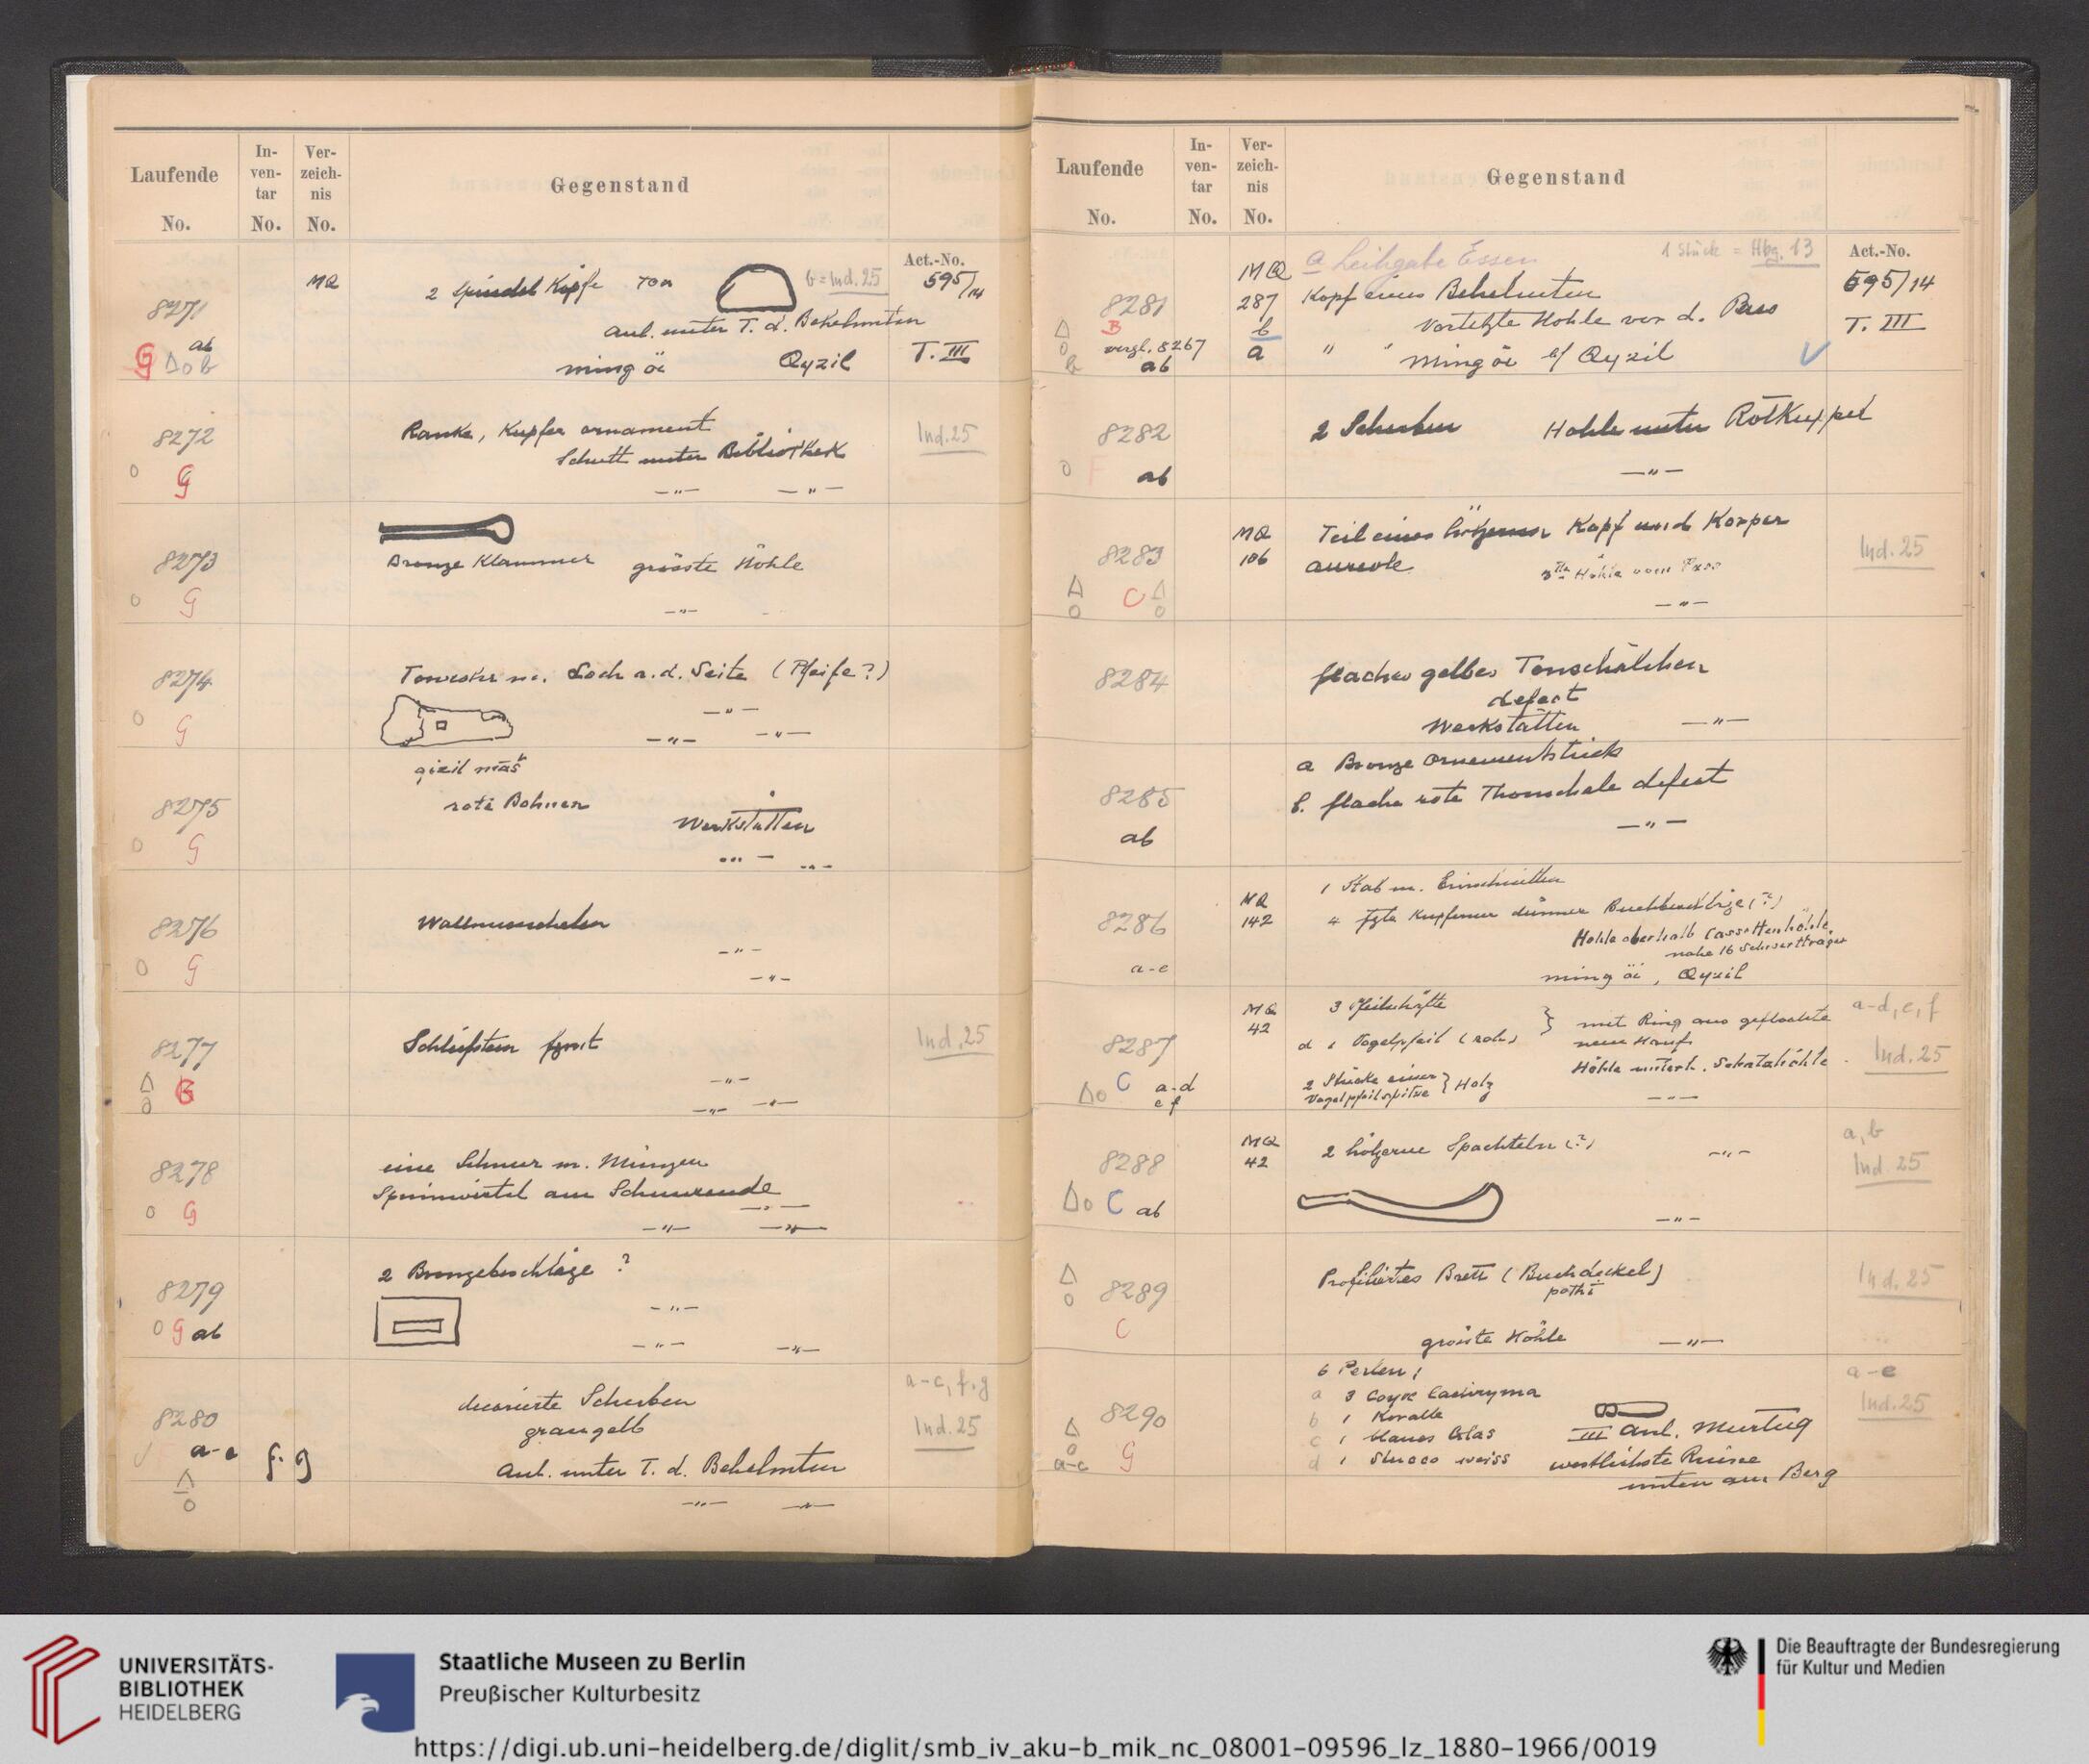 Laufende
No.
In-
ven-
tar
No.
Ver-
zeich-
nis
No.
Gegenstand
Act.-No.
8271
G ab
△ o b
MQ
2 Spindel Köpfe Ton
b = Ind. 25
595/14
Anl. unter T. d. Behelmten
ming öi Qyzil
T. III
8272
o G
Ranke, Kupfer ornament
Schutt unter Bibliothek
—"— —"—
Ind. 25
8273
o G
Bronze Klammer grösste Höhle
—"—
8274
o G
Tonrohr m. Loch a. d. Seite (Pfeife?)
—"—
—"— —"—
8275
o G
qizil māš
rote Bohnen
Werkstätten
8276
o G
—"—
—"—
8277
△ o B
Schleifstein fgmt
—"—
—"— —"—
Ind. 25
8278
o G
eine Schnur m. Münzen
Spinnwirtel am Schnurende
—"— —"—
8279
o G ab
2 Bronzebeschläge ?
—"—
—"— —"—
8280
a-e f. g
△ o
decorierte Scherben
graugelb
Anl. unter T. d. Behelmten
—"— —"—
a-c, f. g
Ind. 25
Laufende
No.
In-
ven-
tar
No.
Ver-
zeich-
nis
No.
Gegenstand
Act.-No.
8281
△ o b
B
vergl. 8267
ab
MQ
287
b
a
a Leihgabe Essen
1 Stück = Hbg. 13
Kopf eines Behelmten
Vorletzte Höhle vor d. Pass
" " Ming öi b/ Qyzil
595/14
T. III
8282
o F ab
2 Scherben Höhle unter Rotkuppel
—"—
8283
△ o C △ o
MQ
106
Teil eines hölzernen Kopf und Körper
aureole
3te Höhle vom Pass
—"—
Ind. 25
8284
flaches gelbes Tonschälchen
defect
Werkstätten —"—
8285
ab
a Bronze Ornamentstück
b. flache rote Thonschale defect
—"—
8286
a-e
MQ
142
1 Stab m. Einschnitten
4 fgte Kupferner dünner Buchbeschläge (?)
Höhle oberhalb Cassettenhöhle,
nahe 16 Schwertträger
ming öi, Qyzil
8287
△ o C a-d
e f
MQ
42
3 Pfeilschäfte
d 1 Vogelpfeil (roh)
} mit Ring aus
2 Stücke einer
Vogelpfeilspitze } Holz
Höhle unterh.
—"—
a-d, e, f
Ind. 25
8288
△ o C ab
MQ
42
2 hölzerne Spachteln (?)
—"—
—"—
a, b
Ind 25
8289
△ o
C
Profiliertes Brett (Buchdeckel)
pothī
grösste Höhle —"—
Ind. 25
8290
△ o
a-c G
6 Perlen:
a 3 Coyx lacriryma
b 1 Koralle
c 1 blaues Glas
d 1 Stucco weiss
III Anl. Murtuq
westlichste Ruine
unten am Berg
a-e
Ind. 25
UNIVERSITÄTS-
BIBLIOTHEK
HEIDELBERG
Staatliche Museen zu Berlin
Preußischer Kulturbesitz
Die Beauftragte der Bundesregierung
für Kultur und Medien
https://digi.ub.uni-heidelberg.de/diglit/smb_iv_aku-b_mik_nc_08001-09596_lz_1880-1966/0019